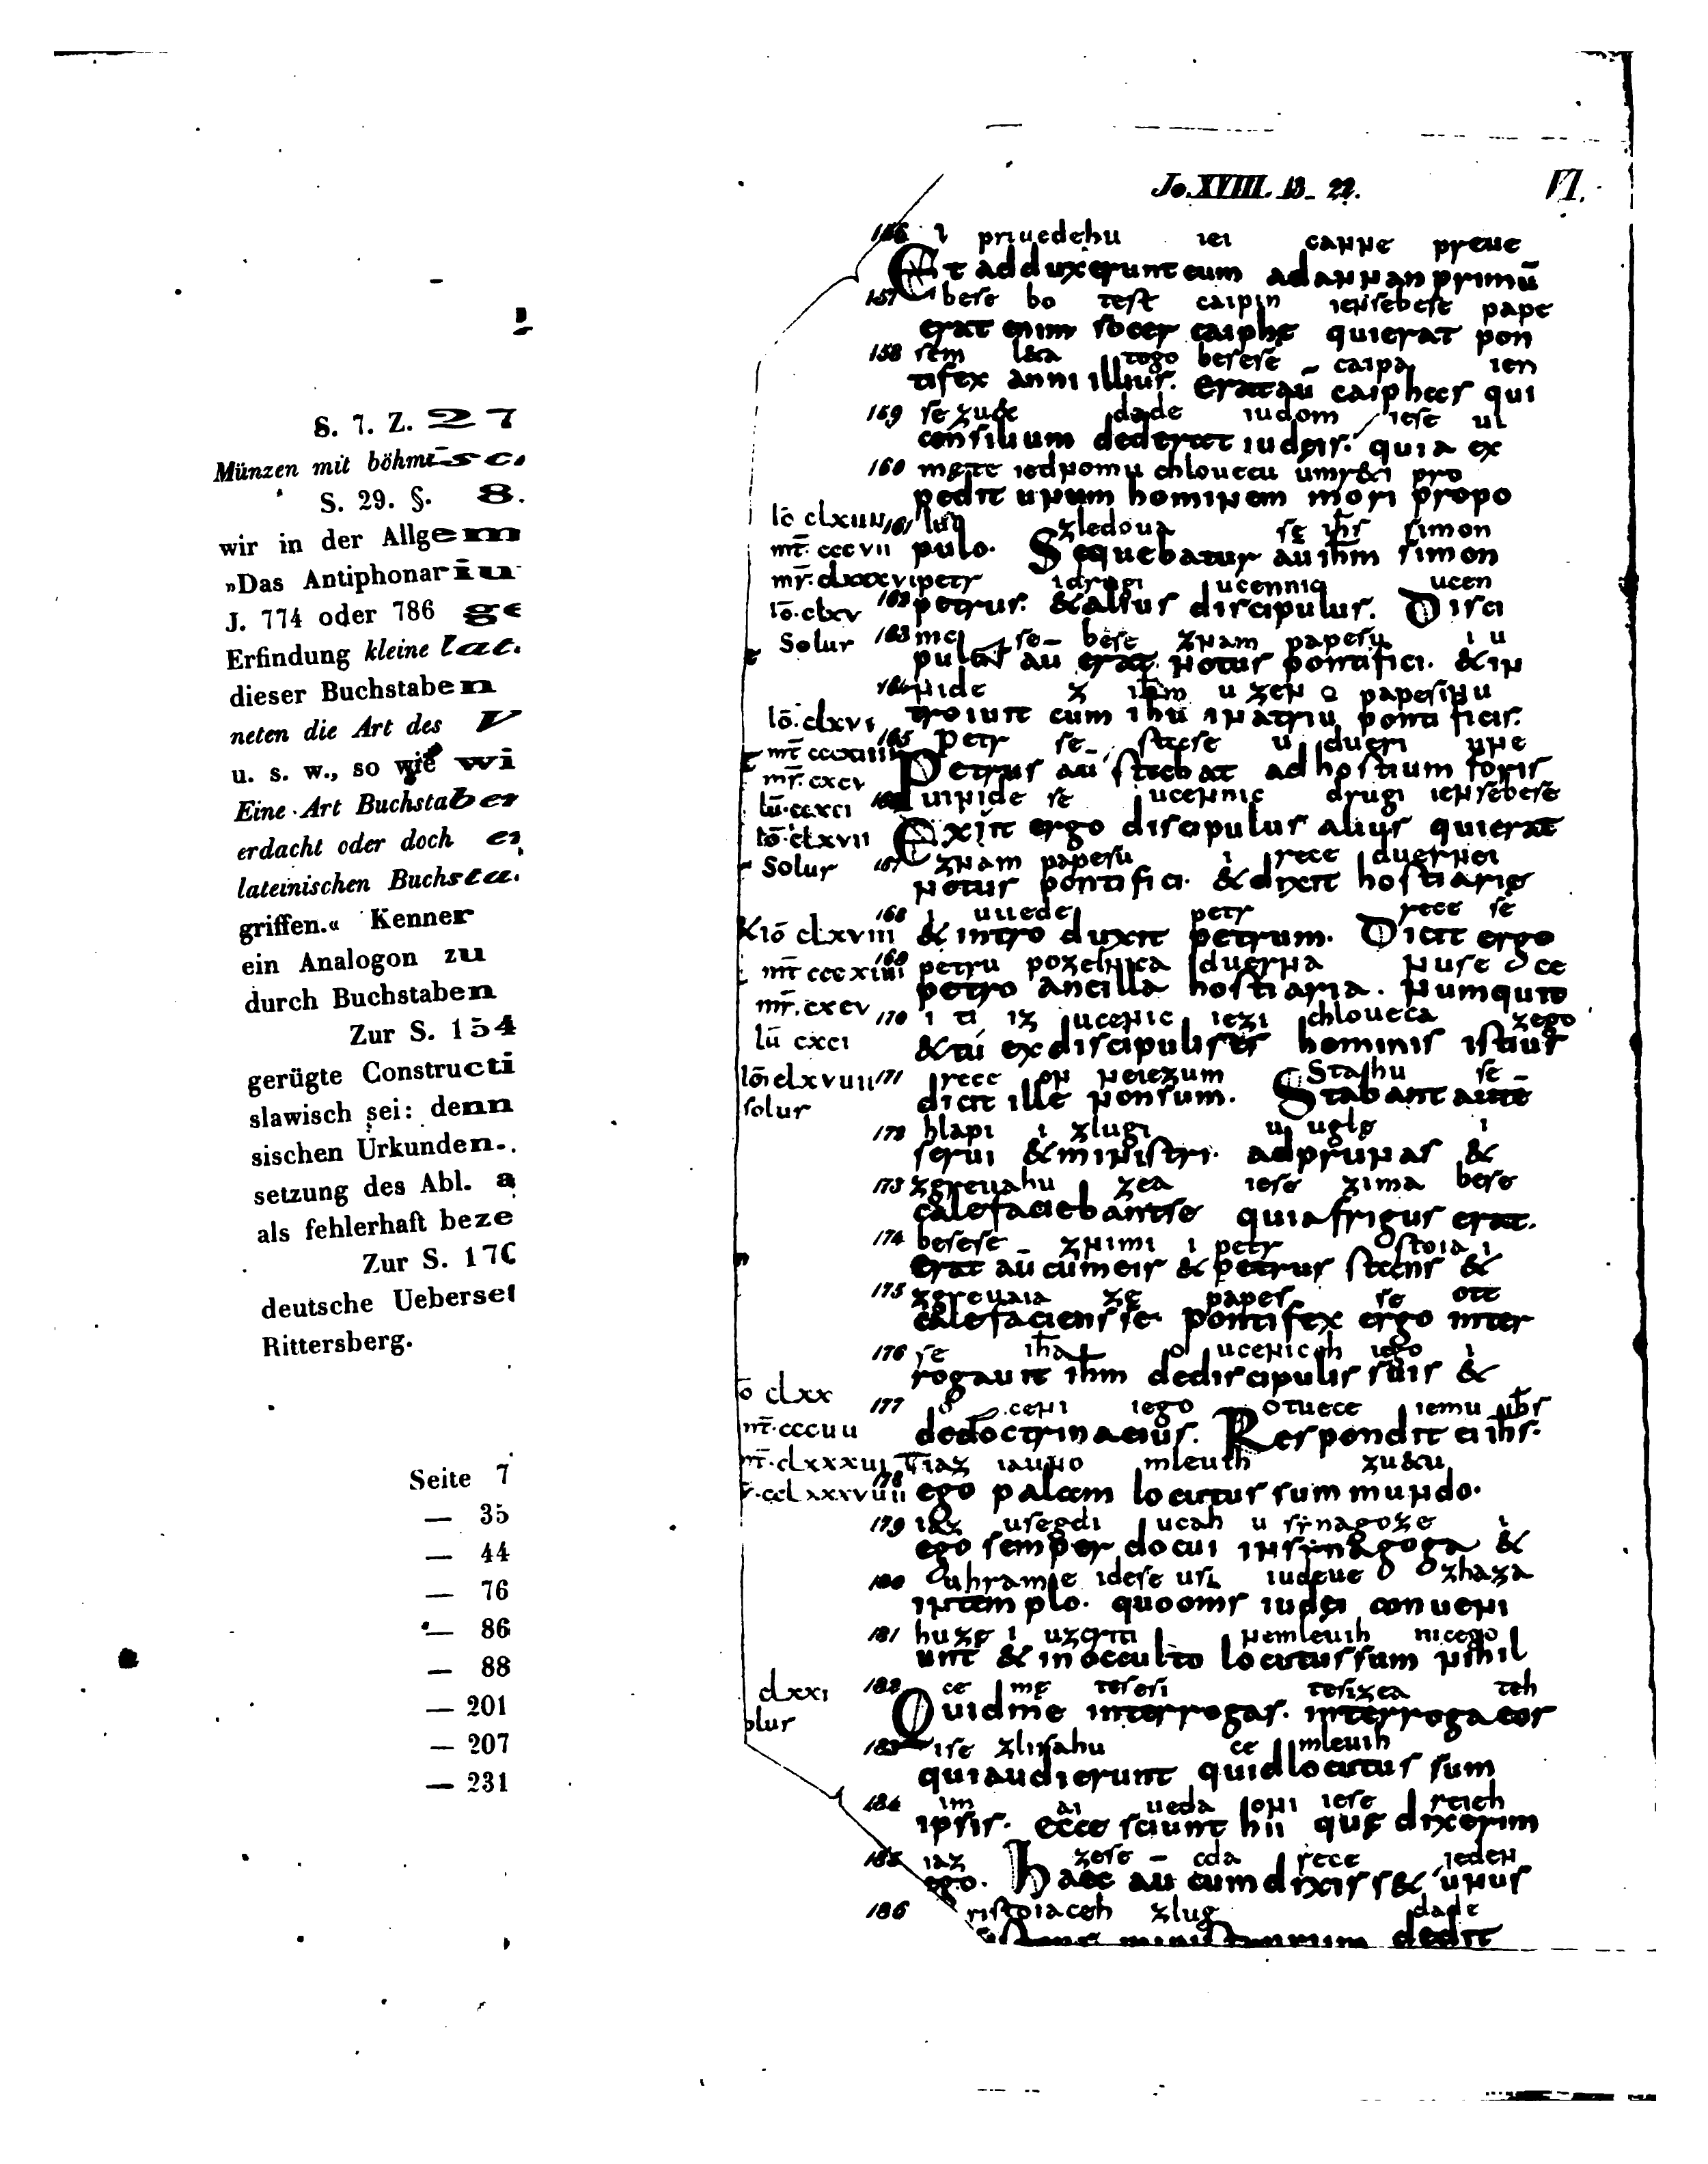 S. 7. Z. 27
Münzen mit böhmisc
S. 29. §. 8.
wir in der Allgem
»Das Antiphonariu
J. 774 oder 786 ge
Erfindung kleine lat.
dieser Buchstaben
neten die Art des V
u. s. w., so wie wi
Eine Art Buchstaben
erdacht oder doch
lateinischen Buchsta
griffen.« Kenner
ein Analogon zu
durch Buchstaben
Zur S. 154
gerügte Constructi
slawisch sei: denn
sischen Urkunden.
setzung des Abl. a
als fehlerhaft beze
Zur S. 170
deutsche Ueberset
Rittersberg.
Seite 7
— 35
— 44
— 76
— 86
— 88
— 201
— 207
— 231
Jo. XVIII. 13_22. VI.
156 i priuedehu iei canne preue
Et adduxerunt eum ad annan primū
157 bese bo test caipin iensebese pape
erat enim socer caiphe qui erat pon
158 sem &a togo besese caipa ien
tifex anni illius. erat aū caiphas qui
159 se zu& dade iudom iese ul
consilium dederat iudeis. quia ex
160 iednomu chlouecu umr&i pro
pedit unum hominem mori pro po
161 zledoua se ihs simon
pulo. Sequebatur au ihm simon
petr i drugi ucennic ucen
162 petrus. & alius discipulus. Disci
163 se bese znam papesu i u
pulus au erat notus pontifici. & in
164 nide z papesinu
troiuit cum ihu in atriu pontificis.
165 petr se stase u dueri une
Petrus au stabat ad hostium foris
uinide se ucennic drugi iensebese
Exiit ergo discipulus alius qui erat
167 znam papesu i rece duernei
notus pontifici. & dixit hostiarie
168 i uuede petr rece se
& intro duxit petrum. Dicit ergo
169 petru pozelnica duerna nuse
petro ancilla hostiaria. Numquid
170 i ti iz ucenic iezi chloueca zego
& tu ex discipulis es hominis istius
171 rece on neiezum Stahu se
dicit ille non sum. Stabant autē
172 hlapi i zlugi u ugle i
serui & ministri. ad prunas &
173 zgreuahu zea iese zima bese
calefaciebant se quia frigus erat.
174 besese znimi i petr stoia i
erat au cum eis & petrus stans &
175 zgreuaia ze papes se ote
calefaciens se. Pontifex ergo inter
176 se iha o ucenicoh iego i
rogauit ihm de discipulis suis &
177 ceni iego otuece iemu ihs
de doctrina eius. Respondit ei ihs.
178 iaz iauno mleuih zu&u
ego palam locutus sum mundo.
179 iaz usegdi ucah u synagoze i
ego semper docui in synagoga &
180 uhrame idese usi iudeue zhaza
in templo. quo oms iudei conueni
181 huze i uzcriti nemleuih nicego
unt & in occulto locutus sum nihil
182 ce me tesesi tesizea teh
Quid me interrogas. interroga eos
183 ise zlisahu ce mleuih
qui audierunt quid locutus sum
184 im ai ueda oni iese reieh
ipsis. ecce sciunt hii que dixerim
185 iaz zese cda rece ieden
ego. Haec au cum dixiss& unus
186 ristoiaceh zlug dade
ministrorum dedit